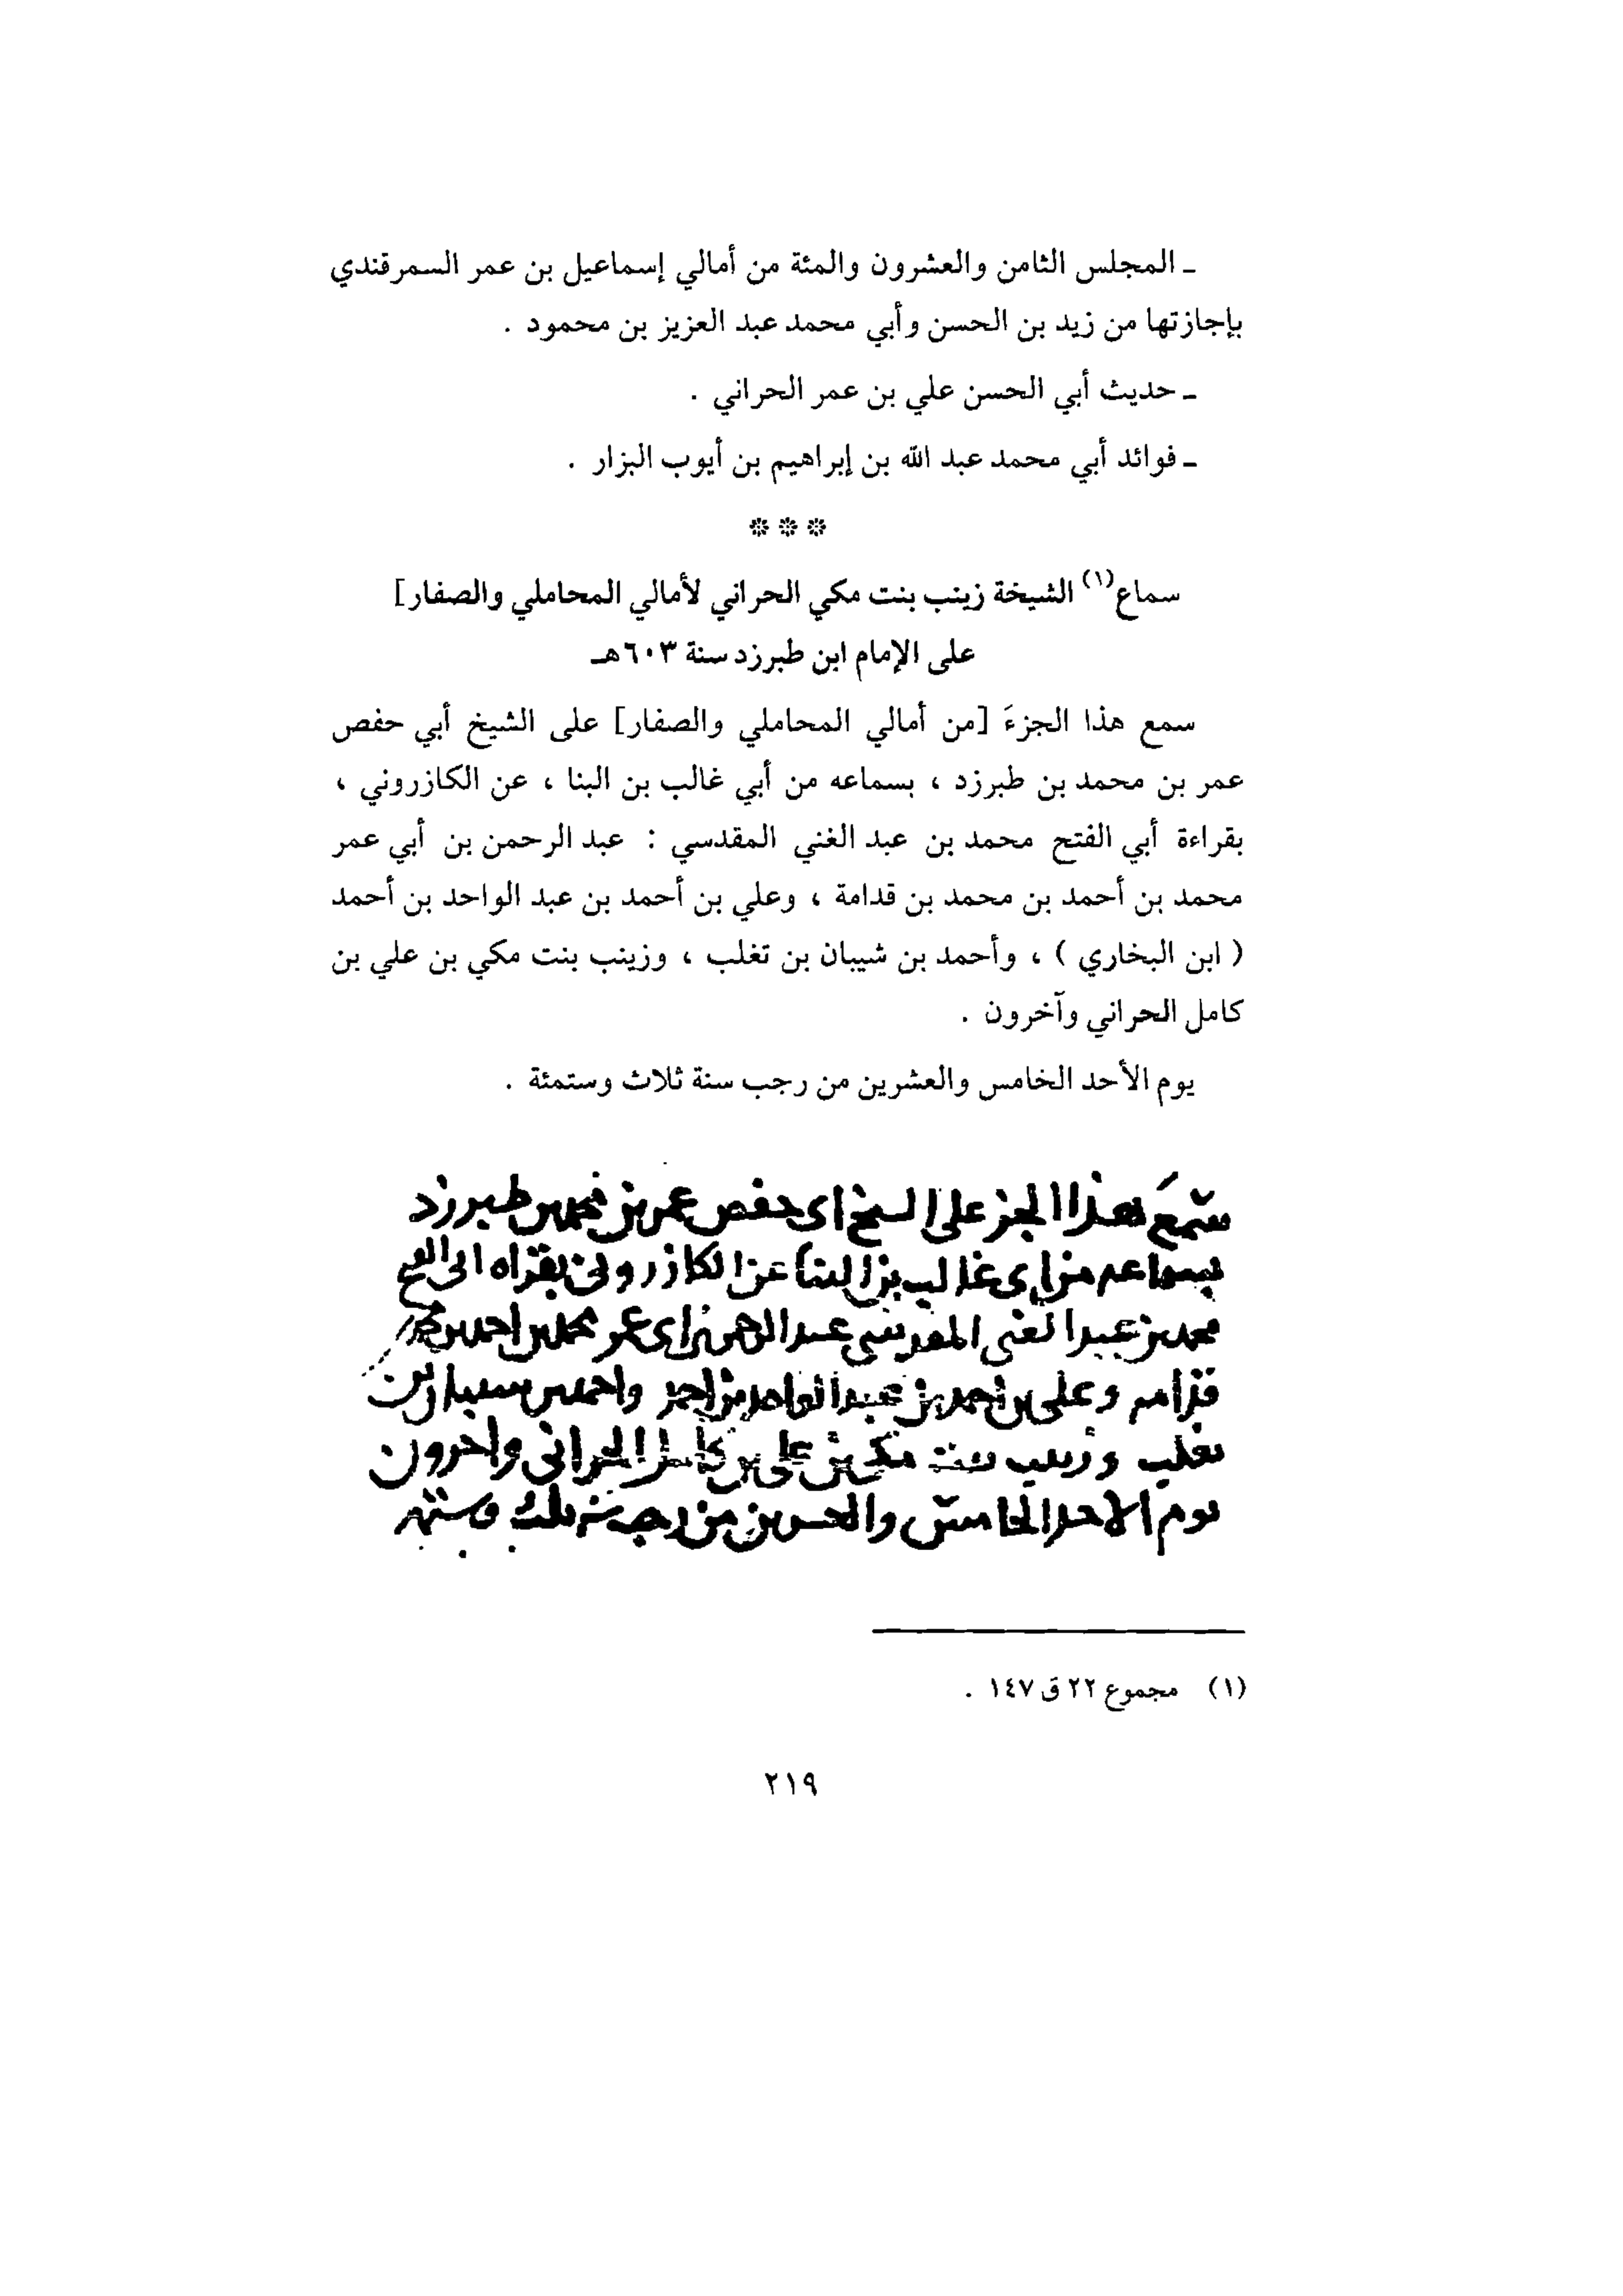 ـ المجلس الثامن والعشرون والمئة من أمالي إسماعيل بن عمر السمرقندي
بإجازتها من زيد بن الحسن وأبي محمد عبد العزيز بن محمود .
ـ حديث أبي الحسن علي بن عمر الحراني .
ـ فوائد أبي محمد عبد الله بن إبراهيم بن أيوب البزار .
* * *
سماع(١) الشيخة زينب بنت مكي الحراني لأمالي المحاملي والصفار]
على الإمام ابن طبرزد سنة ٦٠٣هـ
سمع هذا الجزءَ [من أمالي المحاملي والصفار] على الشيخ أبي حفص
عمر بن محمد بن طبرزد ، بسماعه من أبي غالب بن البنا ، عن الكازروني ،
بقراءة أبي الفتح محمد بن عبد الغني المقدسي : عبد الرحمن بن أبي عمر
محمد بن أحمد بن محمد بن قدامة ، وعلي بن أحمد بن عبد الواحد بن أحمد
( ابن البخاري ) ، وأحمد بن شيبان بن تغلب ، وزينب بنت مكي بن علي بن
كامل الحراني وآخرون .
يوم الأحد الخامس والعشرين من رجب سنة ثلاث وستمئة .
سمع هذا الجز على الشيخ ابى حفص عمر بن محمد بن طبرزد
بسماعه من ابى غالب بن البنا عن الكازرونى بقراه ابى الفتح
محمد بن عبد الغنى المقدسى عبد الرحمن بن ابى عمر محمد بن احمد بن محمد
قدامه وعلى بن احمد بن عبد الواحد بن احمد واحمد بن شيبان بن
تغلب وزينب بنت مكى بن على بن كامل الحرانى واخرون
يوم الاحد الخامس والعشرين من رجب سنه ثلث وستمه
(١) مجموع ٢٢ ق ١٤٧ .
٢١٩